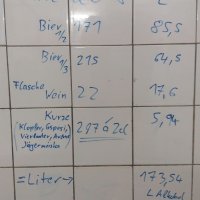 Bier 1/2 171 85,5
Bier 1/3 215 64,5
Flasche
Wein 22 17,6
Kurze
(Klopfer, Gspusi, 297 á 2cl 5,94
Jägermeister)
=Liter→ 173,54
L Alkohol